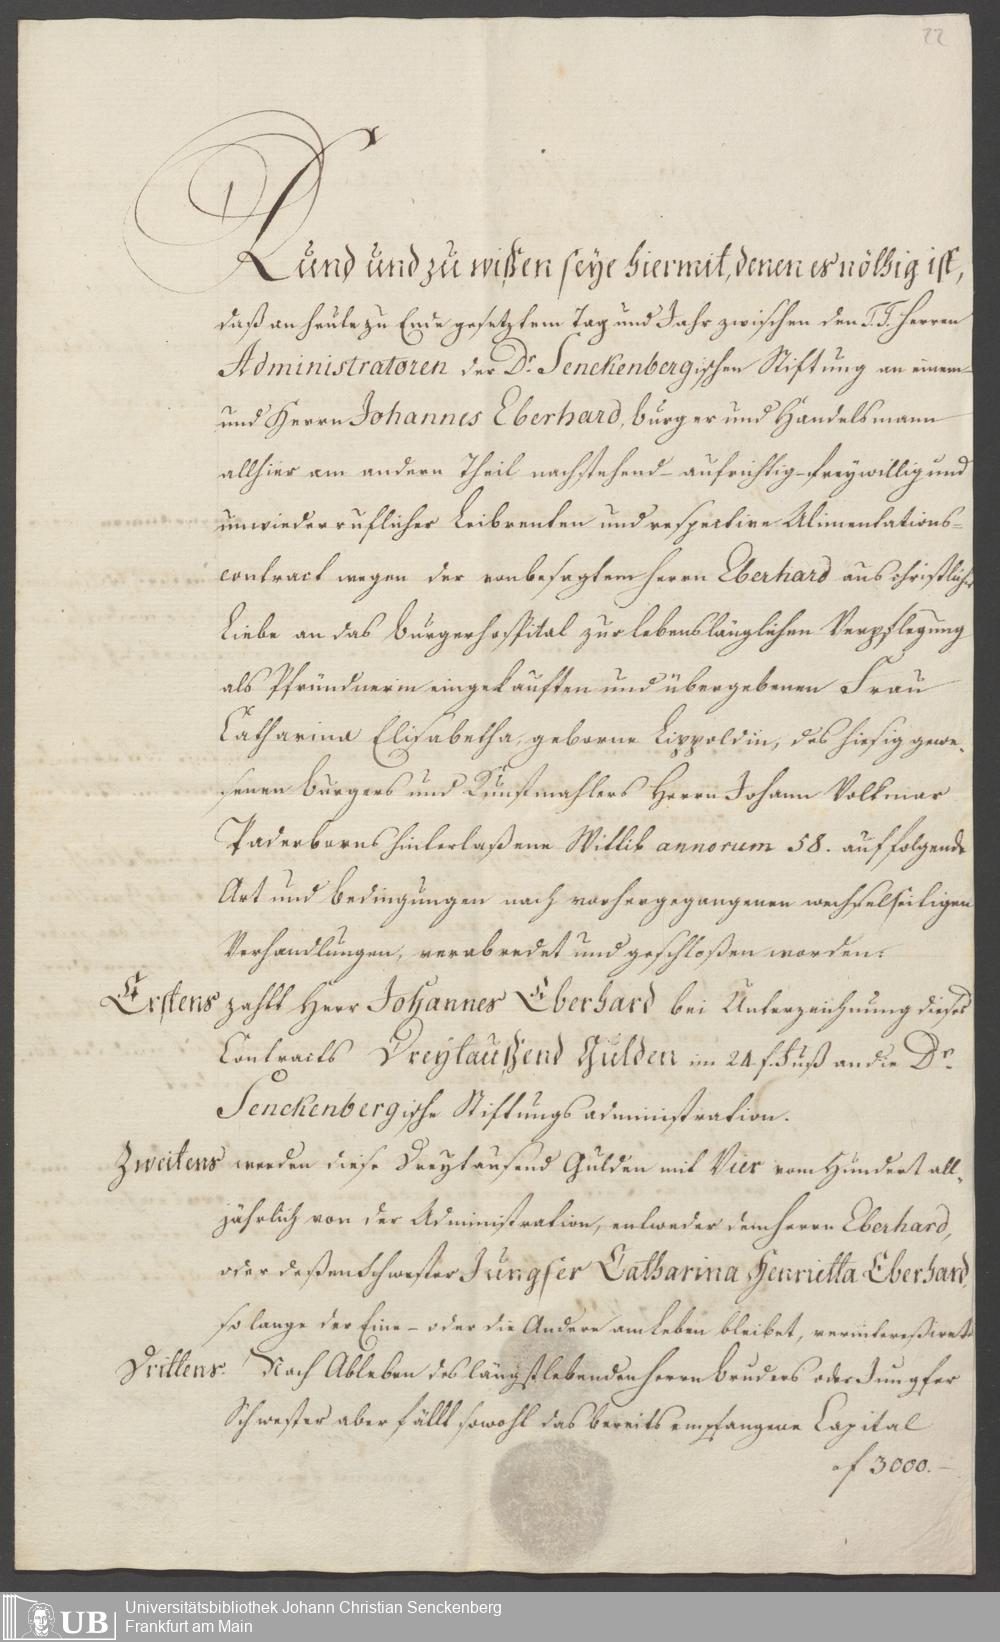 22
Kund und zu wißen seye hiermit, denen es nöthig ist,
daß an heute zu Ende gesetztem Tag und Jahr zwischen den T. T. Herren
Administratoren der Dr. Senckenbergischen Stiftung an einem
und Herrn Johannes Eberhard, Burger und Handelsmann
allhier am andern Theil nachstehend- aufrichtig- freywillig und
unwiederruflicher Leibrenten und respective Alimentations-
contract wegen der von besagtem Herrn Eberhard aus christlicher
Liebe an das Burgerhospital zur lebenslänglichen Verpflegung
als Pfründnerin eingekauften und übergebenen Frau
Catharina Elisabetha, geborne Lippoldin, des hiesig gewe-
senen Burgers und Kunstmahlers Herrn Johann Volkmar
Paderborns hinterlaßene Wittib annorum 58. auf folgende
Art und Bedingungen nach vorhergegangenen wechselseitigen
Verhandlungen, verabredet und geschloßen worden:
Erstens zahlt Herr Johannes Eberhard bei Unterzeichnung dieses
Contracts Dreytaußend Gulden im 24 f. Fuß an die Dr.
Senckenbergische Stiftungsadministration.
Zweitens werden diese Dreytausend Gulden mit Vier vom Hundert all-
jährlich von der Administration, entweder dem Herrn Eberhard,
oder deßen Schwester Jungfer Catharina Henrietta Eberhard,
so lange der Eine- oder die Andere am Leben bleibet, verintereßiret
Drittens. Nach Ableben des längstlebenden Herrn Bruders oder Jungfer
Schwester aber fällt sowohl das bereits empfangene Capital
f 3000.-
UB
Universitätsbibliothek Johann Christian Senckenberg
Frankfurt am Main